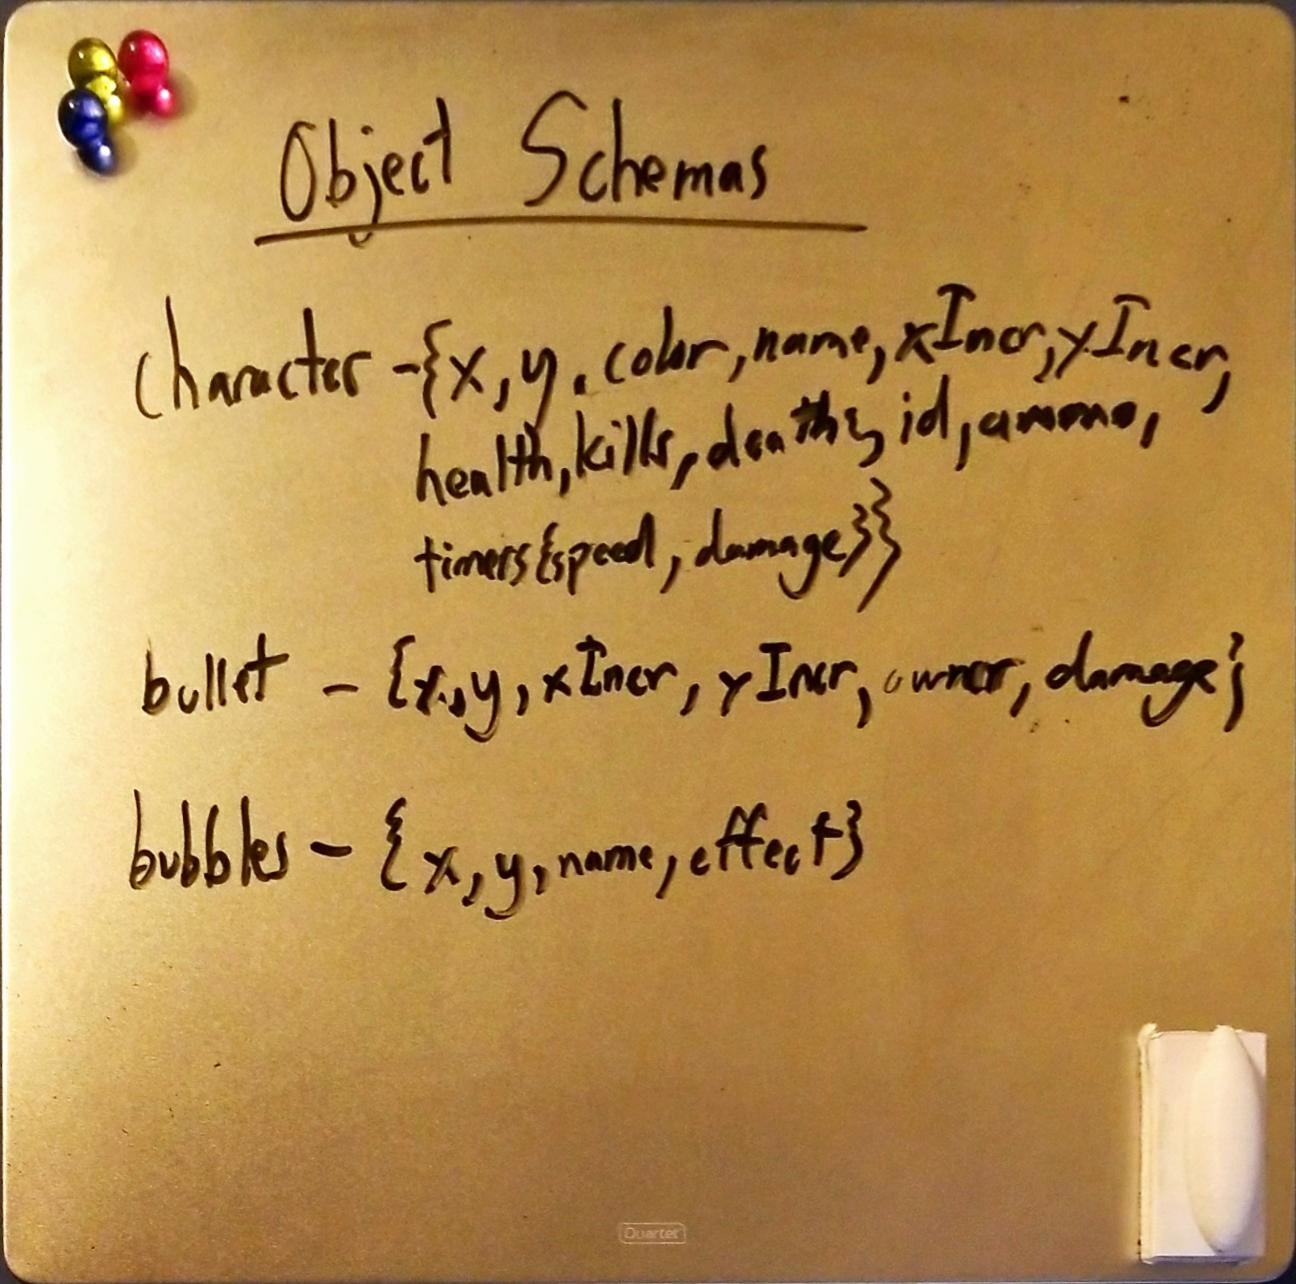 Object Schemas
character - {x, y, color, name, xIncr, yIncr,
health, kills, deaths, id, ammo,
timers{speed, damage}}
bullet - {x, y, xIncr, yIncr, owner, damage}
bubbles - {x, y, name, effect}
Quartet